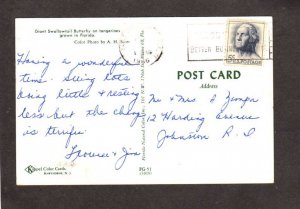 Giant Swallowtail Butterfly on tangerines
grown in Florida.
Color Photo by A. H.
Having a wonderful
time. Seeing lots
doing little & resting
less but the change
is terrific.
Florence & Jim
1966
BETTER BUSINESS
5¢
POST CARD
Address
Mr & Mrs J
12 Harding avenue
Johnston R. I
Koppel Color Cards
HAWTHORNE, N. J.
FG-91